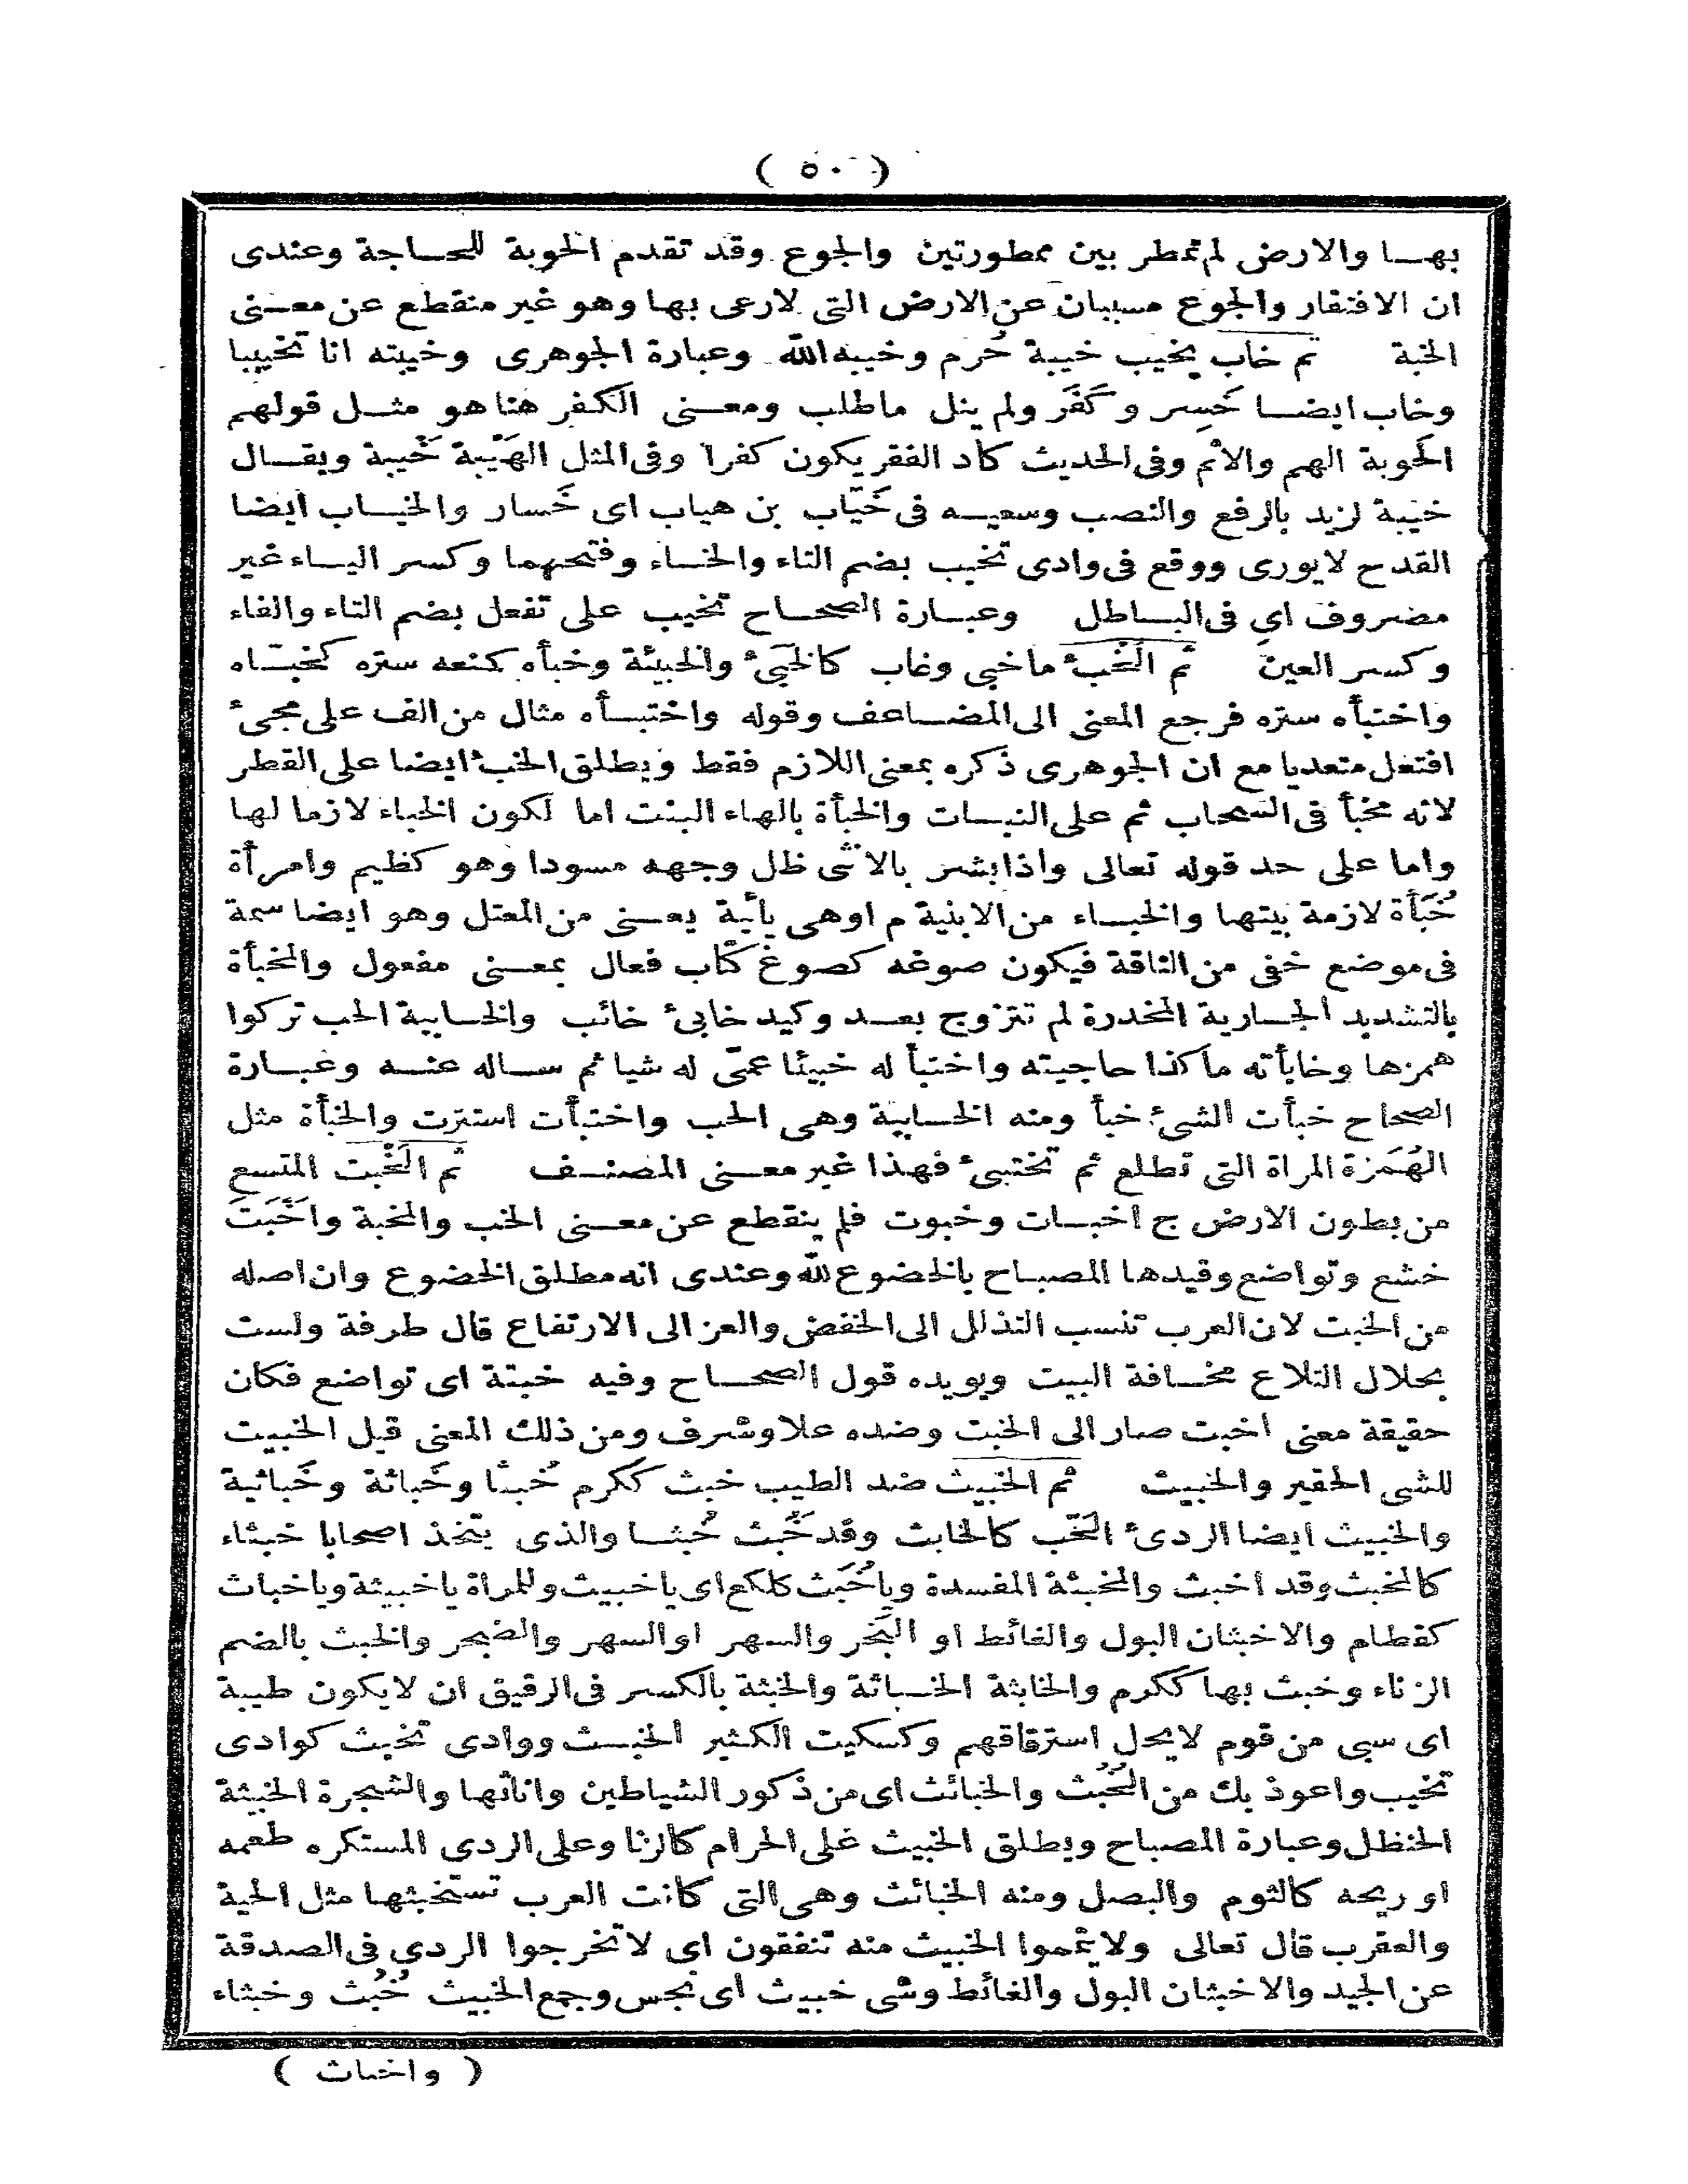 ( ٥٠ )
بهــا والارض لم تمطر بين ممطورتين والجوع وقد تقدم الخوبة للحــاجة وعندى
ان الافتقار والجوع مسببان عن الارض التى لارعى بها وهو غير منقطع عن معــنى
الخبة ثم خاب يخيب خيبة حُرم وخيبه الله وعبارة الجوهرى وخيبته انا تخييبا
وخاب ايضــا خَسِر وكَفَر ولم ينل ماطلب ومعــنى الكفر هنا هو مثــل قولهم
الحَوبة الهم والاثم وفى الحديث كاد الفقر يكون كفرا وفى المثل الهَيْبة خَيْبة ويقــال
خيبة لزيد بالرفع والنصب وسعيــه فى خَيّاب بن هياب اى خَسار والخيــاب ايضا
القدح لايورى ووقع فى وادى تخيب بضم التاء والخــاء وفتحهما وكسر اليــاء غير
مصروف اى فى البــاطل وعبــارة الصحــاح تخيب على تفعل بضم التاء والفاء
وكسر العين ثم الخَبْء ماخبى وغاب كالخَبِىء والخبيئة وخبأه كمنعه ستره كخبّــاه
واختبأه ستره فرجع المعنى الى المضــاعف وقوله واختبــأه مثال من الف على مجىء
افتعل متعديا مع ان الجوهرى ذكره بمعنى اللازم فقط ويطلق الخبء ايضا على القطر
لانه مخبأ فى السحاب ثم على النبــات والخبأة بالهاء البنت اما لكون الخباء لازما لها
واما على حد قوله تعالى واذا بشر بالانثى ظل وجهه مسودا وهو كظيم وامرأة
خُبَأة لازمة بيتها والخبــاء من الابنية م اوهى يأيّة يعــنى من المعتل وهو ايضا سمة
فى موضع خفى من الناقة فيكون صوغه كصوغ كتاب فعال بمعــنى مفعول والمخبأة
بالتشديد الجــارية المخدرة لم تتزوج بعــد وكيد خابئ خائب والخــابية الحب تركوا
همزها وخابأته ماكذا حاجيته واختبأ له خبيئا عمّى له شيا ثم ســاله عنــه وعبــارة
الصحاح خبأت الشىء خبأ ومنه الخــابية وهى الحب واختبأت استترت والخبأة مثل
الهُمَزة المراة التى تطلع ثم تختبىء فهذا غير معــنى المصنــف ثم الخَبْت المتسع
من بطون الارض ج اخبــات وخبوت فلم ينقطع عن معــنى الخب والخبة واخْبَتَ
خشع وتواضع وقيدها المصبــاح بالخضوع لله وعندى انه مطلق الخضوع وان اصله
من الخبت لان العرب تنسب التذلل الى الخفض والعز الى الارتفاع قال طرفة ولست
بحلال التلاع مخــافة البيت ويويده قول الصحــاح وفيه خبتة اى تواضع فكان
حقيقة معنى اخبت صار الى الخبت وضده علا وشرف ومن ذلك المعنى قيل الخبيت
للشى الحقير والخبيث ثم الخبيث ضد الطيب خبث ككرم خُبثا وخَباثة وخَباثية
والخبيث ايضا الردىء الخَبّ كالخابث وقد خَبُث خُبثــا والذى يتخذ اصحابا خبثاء
كالمخبث وقد اخبث والمخبثة المفسدة وياخُبَث كلكع اى ياخبيث وللمراة ياخبيثة وياخباث
كقطام والاخبثان البول والغائط او البَخَر والسهر اوالسهر والضجر والخبث بالضم
الزناء وخبث بها ككرم والخابثة الخــباثة والخبثة بالكسر فى الرقيق ان لايكون طيبة
اى سبى من قوم لايحل استرقاقهم وكسكيت الكثير الخبــث ووادى تخبث كوادى
تخيب واعوذ بك من الخُبُث والخبائث اى من ذكور الشياطين واناثها والشجرة الخبيثة
الحنظل وعبارة المصباح ويطلق الخبيث على الحرام كالزنا وعلى الردى المستكره طعمه
او ريحه كالثوم والبصل ومنه الخبائث وهى التى كانت العرب تستخبثها مثل الحية
والعقرب قال تعالى ولاتيمموا الخبيث منه تنفقون اى لاتخرجوا الردى فى الصدقة
عن الجيد والاخبثان البول والغائط وشى خبيث اى نجس وجمع الخبيث خُبُث وخبثاء
( واخباث )